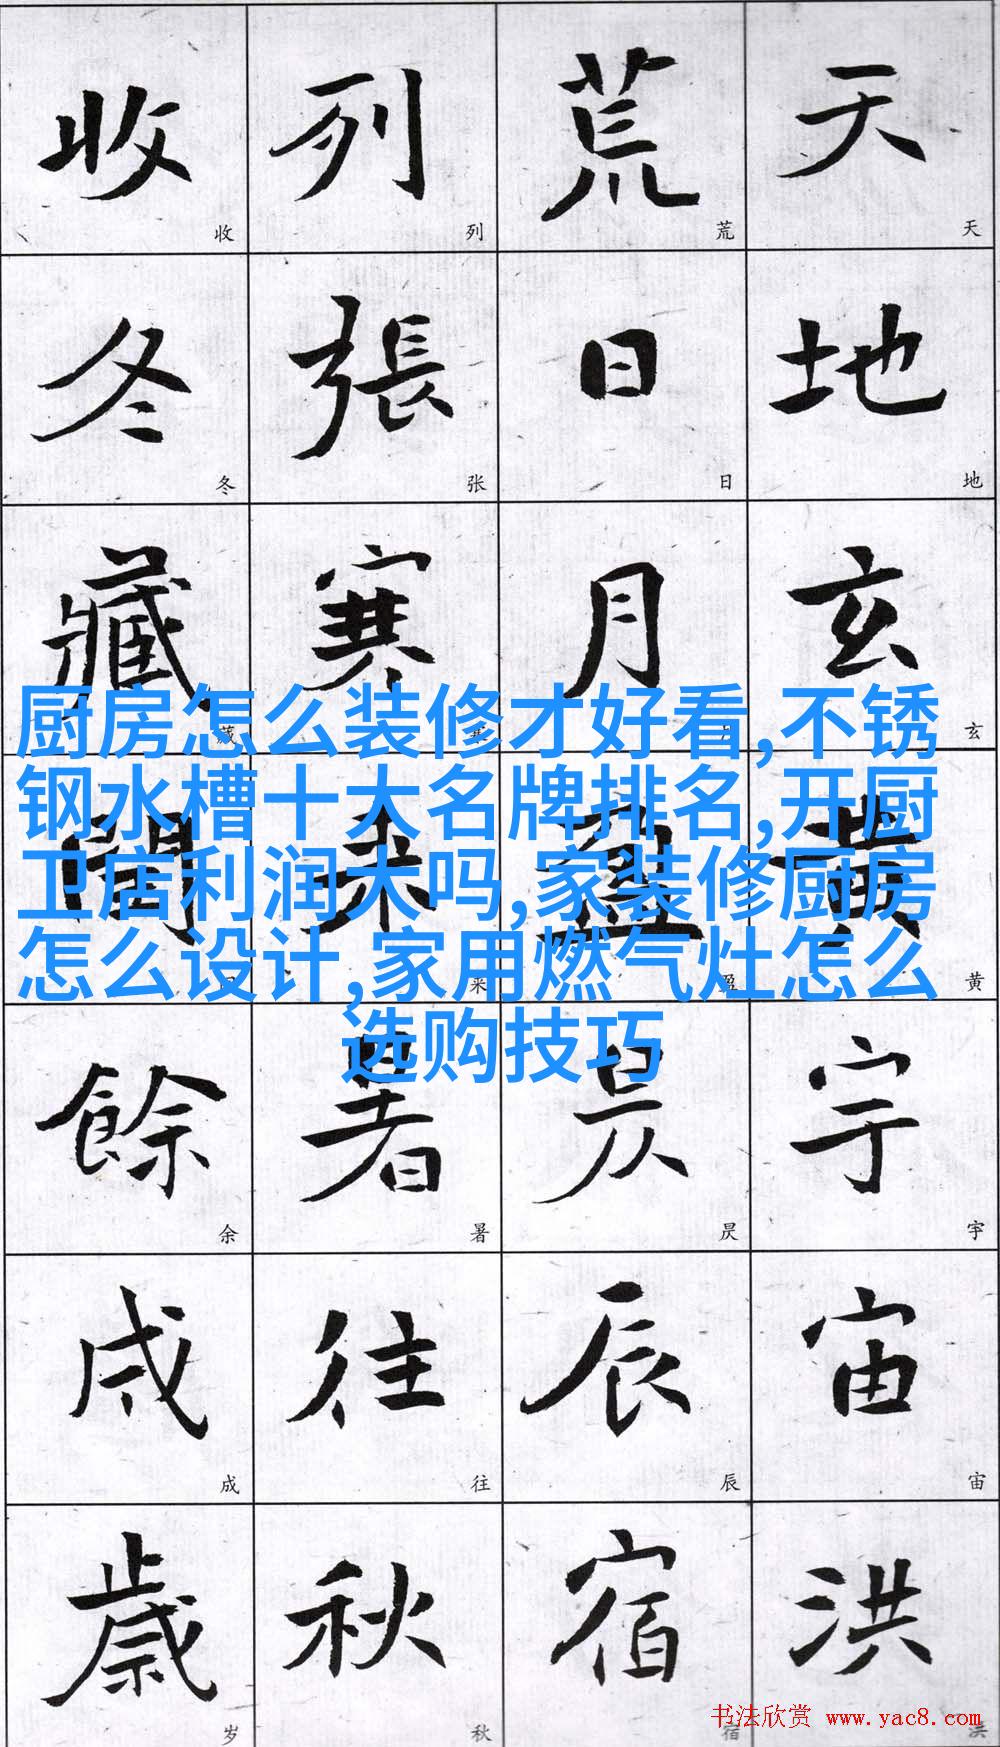 天地玄黄宇宙洪
天地玄黄宇宙洪
荒日月盈昃辰宿
荒日月盈昃辰宿
列張寒来暑往秋
列张寒来暑往秋
收冬藏閏餘成歲
收冬藏闰余成岁
厨房怎么装修才好看,不锈
钢水槽十大名牌排名,开厨
卫店利润大吗,家装修厨房
怎么设计,家用燃气灶怎么
选购技巧
书法欣赏 www.yac8.com